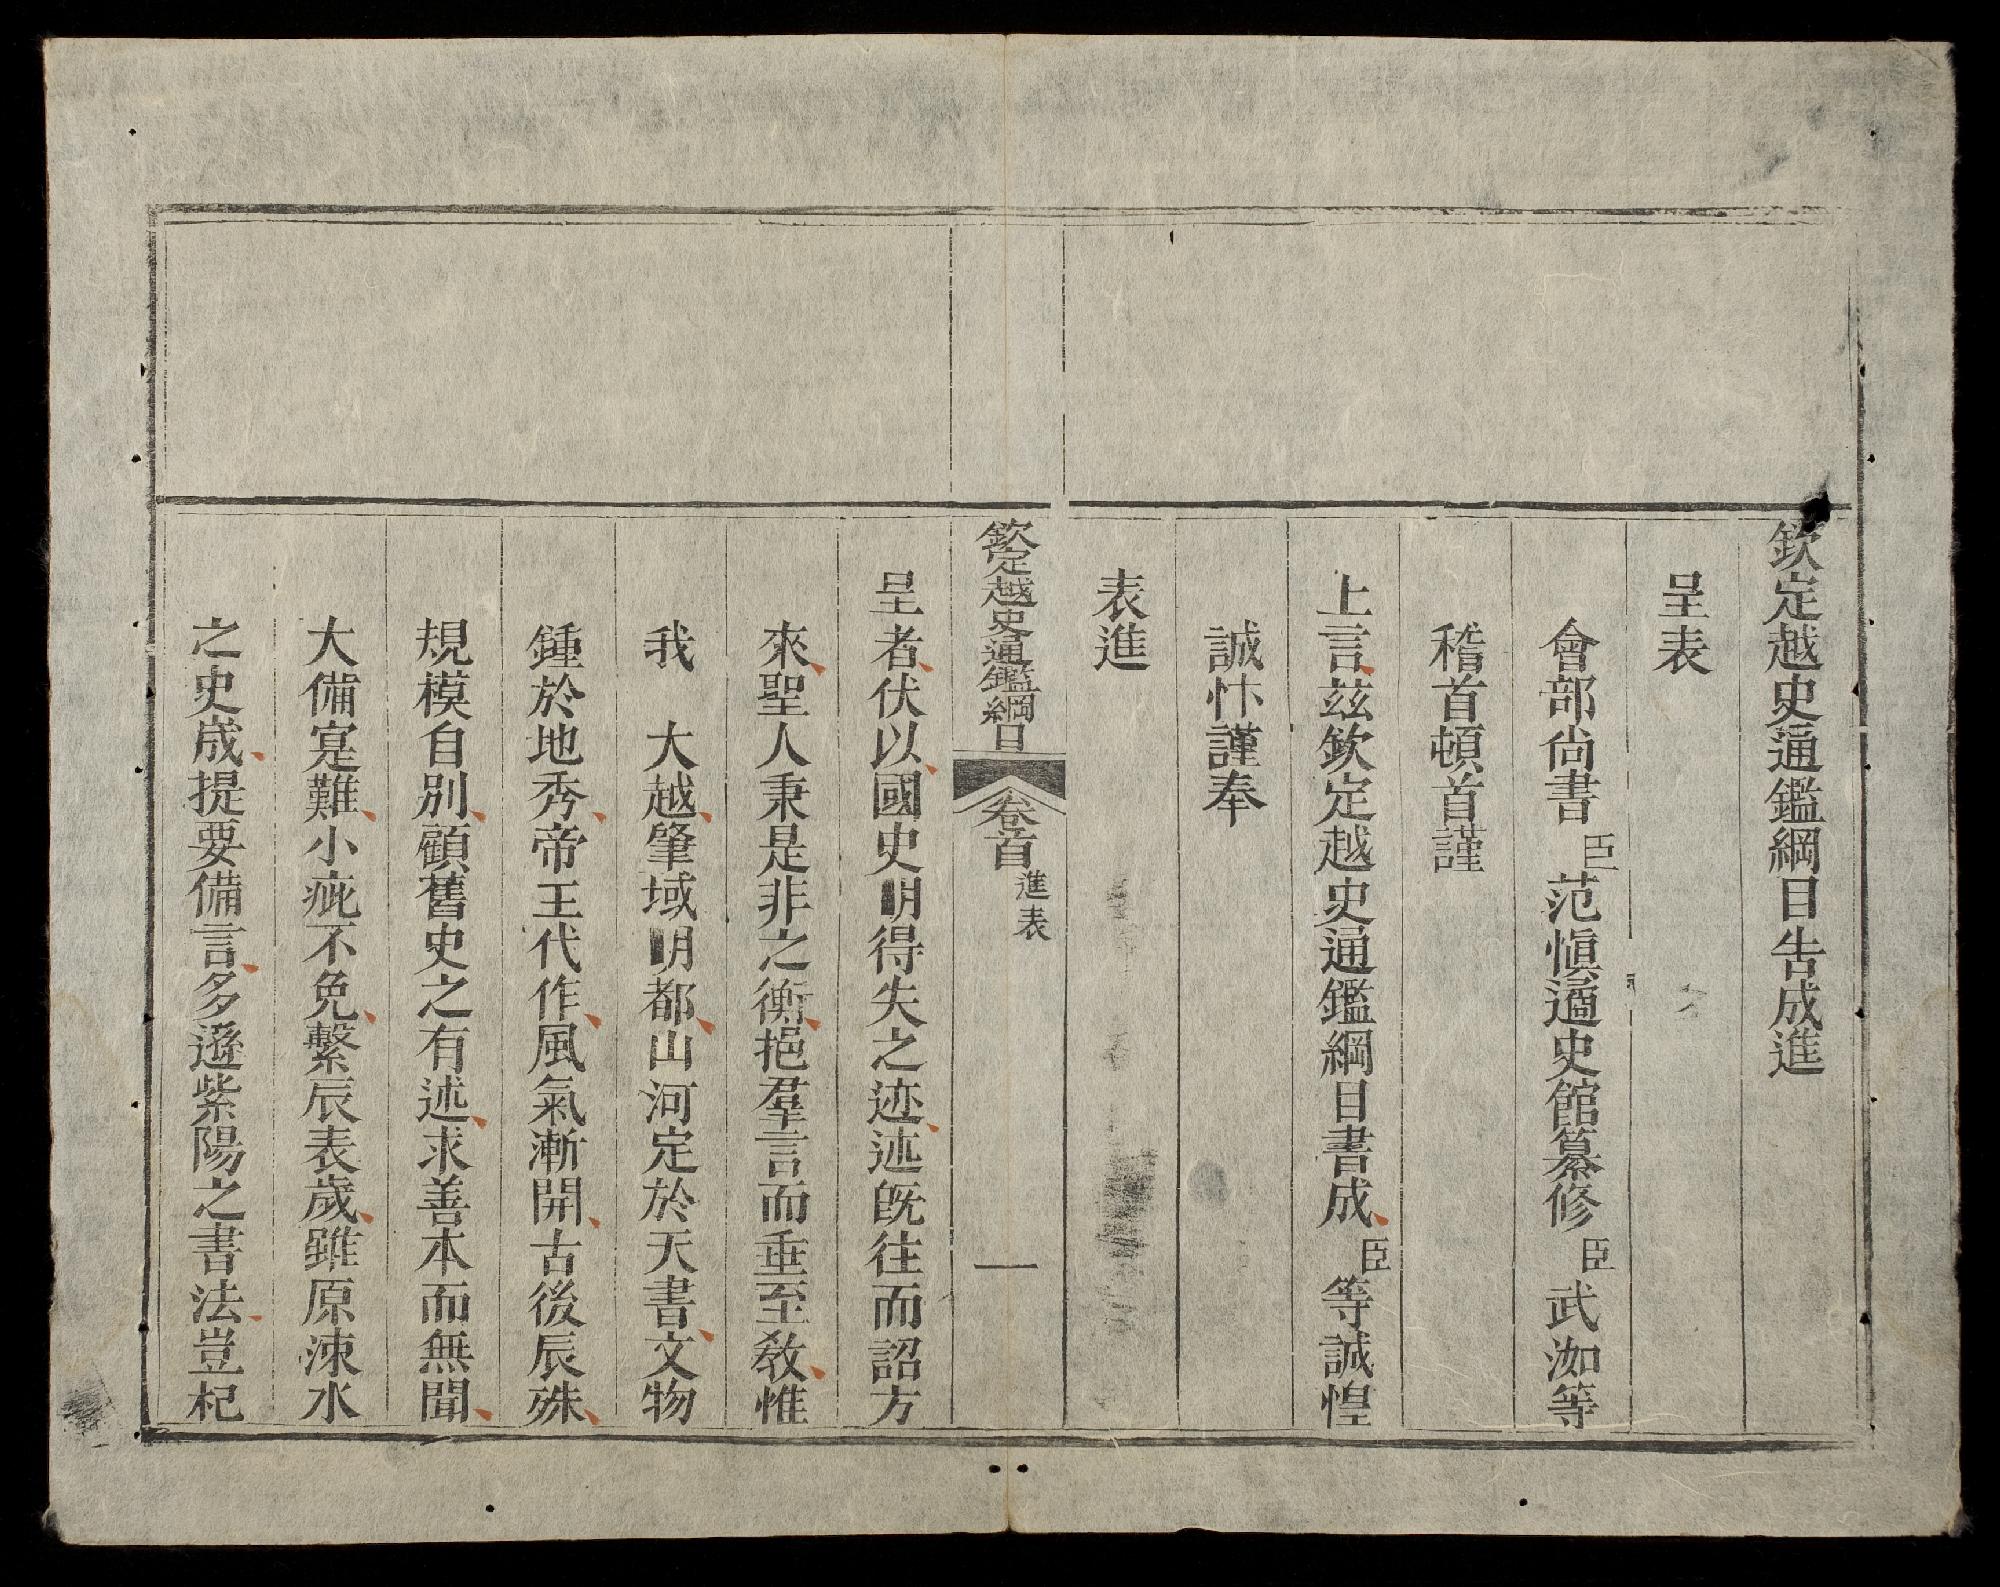 欽定越史通鑑綱目告成進
呈表
會部尚書臣范愼遹史館纂修臣武泇等
稽首頓首謹
上言茲欽定越史通鑑綱目書成臣等誠惶
誠忭謹奉
表進
欽定越史通鑑綱目 卷首 進表 一
呈者伏以國史明得失之迹迹旣往而詔方
來聖人秉是非之衡挹羣言而垂至敎惟
我 大越肇域明都山河定於天書文物
鍾於地秀帝王代作風氣漸開古後辰殊
規模自別顧舊史之有述求善本而無聞
大備寔難小疵不免繫辰表歲雖原涑水
之史成提要備言多遜紫陽之書法豈杞